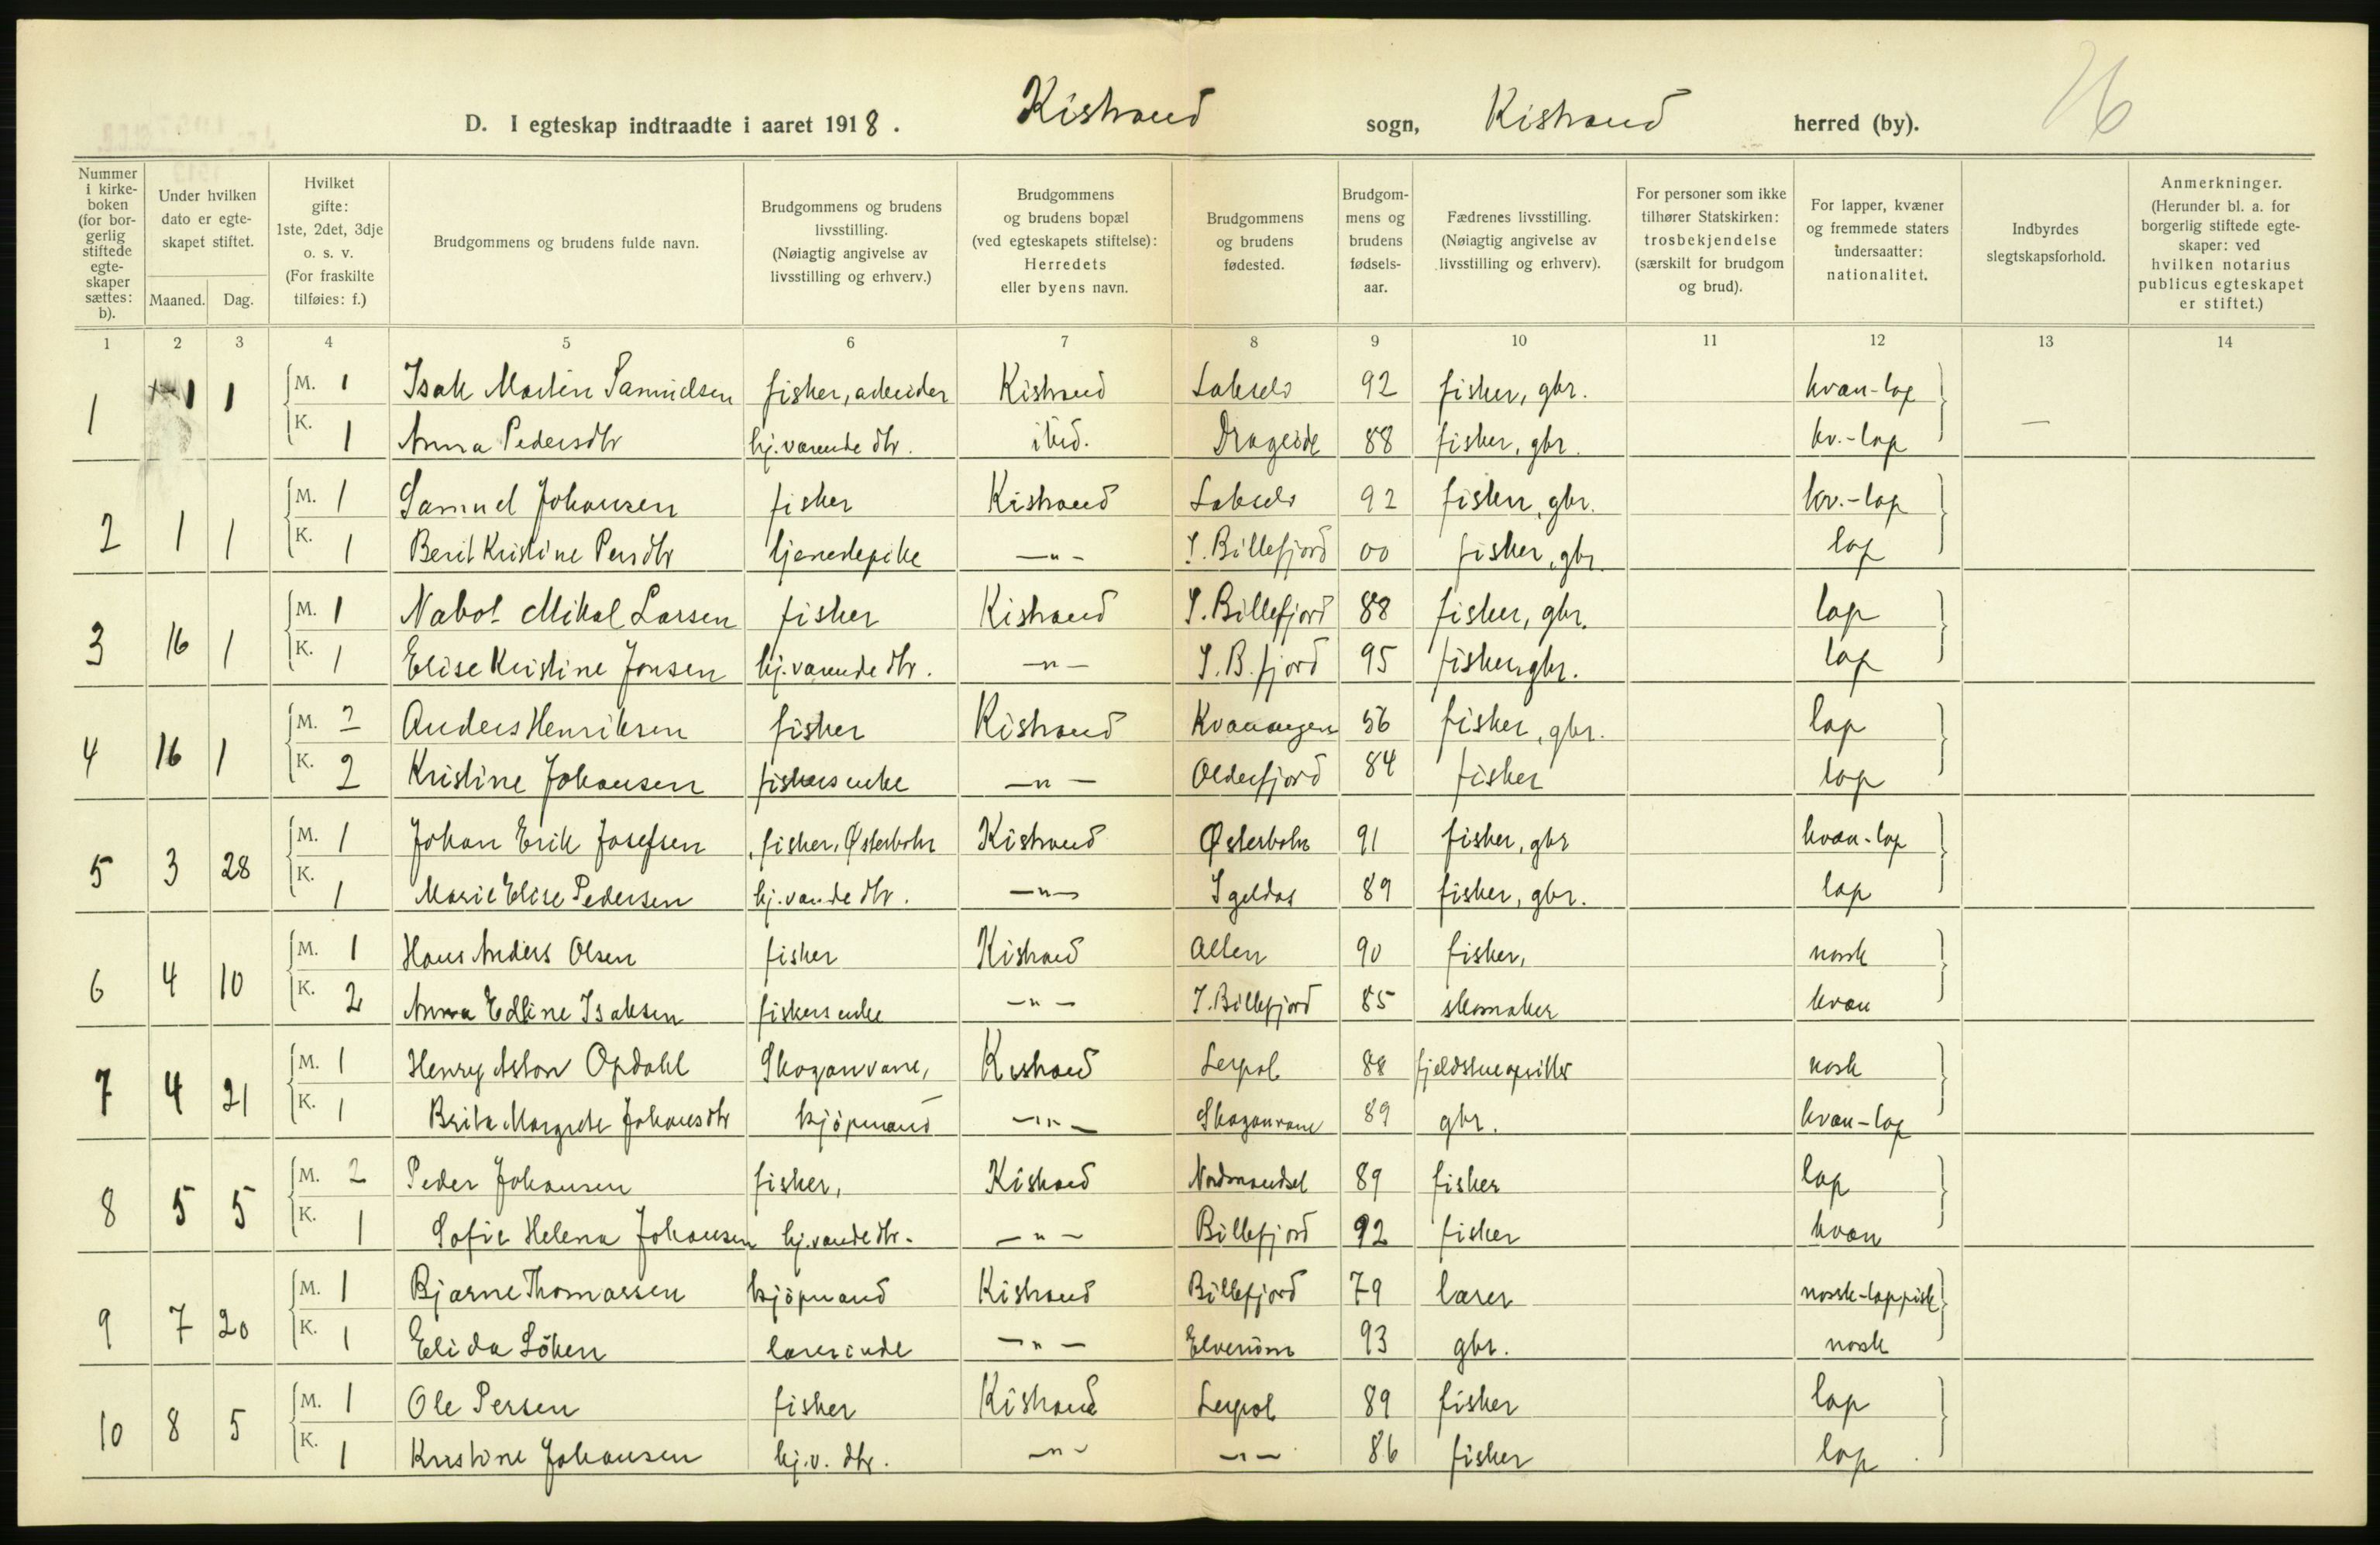 26
D. I egteskap indtraadte i aaret 1918. Kistrand sogn, Kistrand herred (by).
Nummer i kirke-boken (for bor-gerlig stiftede egte-skaper sættes: b).
Under hvilken dato er egte-skapet stiftet.
Maaned. Dag.
Hvilket gifte: 1ste, 2det, 3dje o. s. v. (For fraskilte tilføies: f.)
Brudgommens og brudens fulde navn.
Brudgommens og brudens livsstilling. (Nøiagtig angivelse av livsstilling og erhverv.)
Brudgommens og brudens bopæl (ved egteskapets stiftelse): Herredets eller byens navn.
Brudgommens og brudens fødested.
Brudgom-mens og brudens fødsels-aar.
Fædrenes livsstilling. (Nøiagtig angivelse av livsstilling og erhverv).
For personer som ikke tilhører Statskirken: trosbekjendelse (særskilt for brudgom og brud).
For lapper, kvæner og fremmede staters undersaatter: nationalitet.
Indbyrdes slegtskapsforhold.
Anmerkninger. (Herunder bl. a. for borgerlig stiftede egte-skaper: ved hvilken notarius publicus egteskapet er stiftet.)
1 2 3 4 5 6 7 8 9 10 11 12 13 14
1 1 1 M. 1 Isak Martin Samuelsen fisher, arbeider Kistrand Lakselv 92 fisker, gbr. kvæn-lap
K. 1 Anna Pedersdtr hj. værende dtr. ibid. Drageide 88 fisker, gbr. kv.-lap —
2 1 1 M. 1 Samuel Johansen fisker Kistrand Lakselv 92 fisker, gbr. kv.-lap
K. 1 Berit Kristine Persdtr tjenestepike —"— I. Billefjord 00 fisker, gbr. lap
3 16 1 M. 1 Nabot Mikal Larsen fisker Kistrand I. Billefjord 88 fisker, gbr. lap
K. 1 Elise Kristine Jonsen hj. værende dtr. —"— I. B. fjord 95 fisker, gbr. lap
4 16 1 M. 2 Anders Henriksen fisker Kistrand Kvænangen 56 fisker, gbr. lap
K. 2 Kristine Johansen fiskers enke —"— Olderfjord 84 fisker lap
5 3 28 M. 1 Johan Erik Josefsen fisker, Østerbotn Kistrand Østerbotn 91 fisker, gbr kvæn-lap
K. 1 Marie Elise Pedersen hj. vænde dtr. —"— Igeldas 89 fisker, gbr. lap
6 4 10 M. 1 Hans Anders Olsen fisker Kistrand Alten 90 fisker, norsk
K. 2 Anna Edline Isaksen fiskers enke —"— I. Billefjord 85 skomaker kvæn
7 4 21 M. 1 Henry Aston Opdahl Skoganvarre, Kistrand Leirpol 88 fjeldstueopsitter norsk
K. 1 Brita Margrete Johansdtr kjöpmand —"— Skoganvarre 89 gbr. kvæn-lap
8 5 5 M. 2 Peder Johansen fisker, Kistrand Nordmandset 89 fisker lap
K. 1 Sofie Helena Johansen hj. vænde dtr. —"— Billefjord 92 fisker kvæn
9 7 20 M. 1 Bjarne Thomassen kjöpmand Kistrand Billefjord 79 lærer norsk-lappisk
K. 1 Elida Löken lærerinde —"— Elverum 93 gbr. norsk
10 8 5 M. 1 Ole Persen fisker Kistrand Leirpol 89 fisker lap
K. 1 Kristine Johansen hj. v. dtr. —"— —"— 86 fisker lap